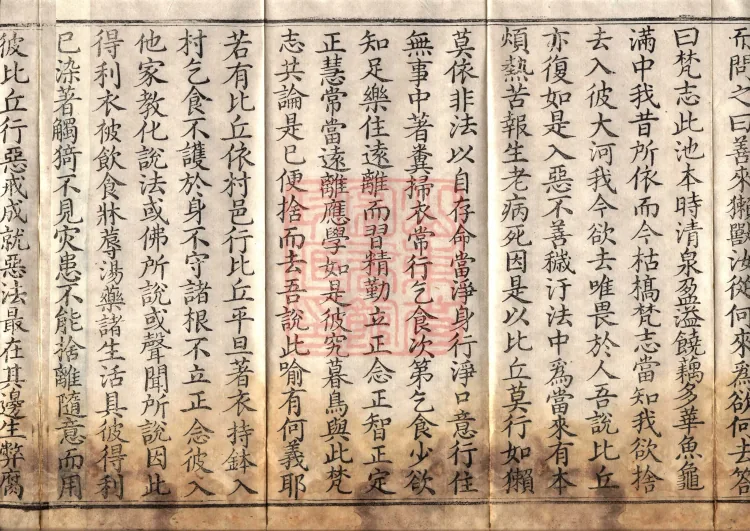 而問之曰善來獺獸汝從何來爲欲何去答
曰梵志此池本時清泉盈溢饒藕多華魚龜
滿中我昔所依而今枯槁梵志當知我欲捨
去入彼大河我今欲去唯畏於人吾說比丘
亦復如是入惡不善穢汙法中爲當來有本
煩熱苦報生老病死因是以比丘莫行如獺
莫依非法以自存命當淨身行淨口意行住
無事中著糞掃衣常行乞食次第乞食少欲
知足樂住遠離而習精勤立正念正智正定
正慧常當遠離應學如是彼究暮鳥與此梵
志共論是已便捨而去吾說此喻有何義耶
若有比丘依村邑行比丘平旦著衣持鉢入
村乞食不護於身不守諸根不立正念彼入
他家教化說法或佛所說或聲聞所說因此
得利衣被飲食牀蓐湯藥諸生活具彼得利
已染著觸猗不見灾患不能捨離隨意而用
彼比丘行惡戒成就惡法最在其邊生弊腐